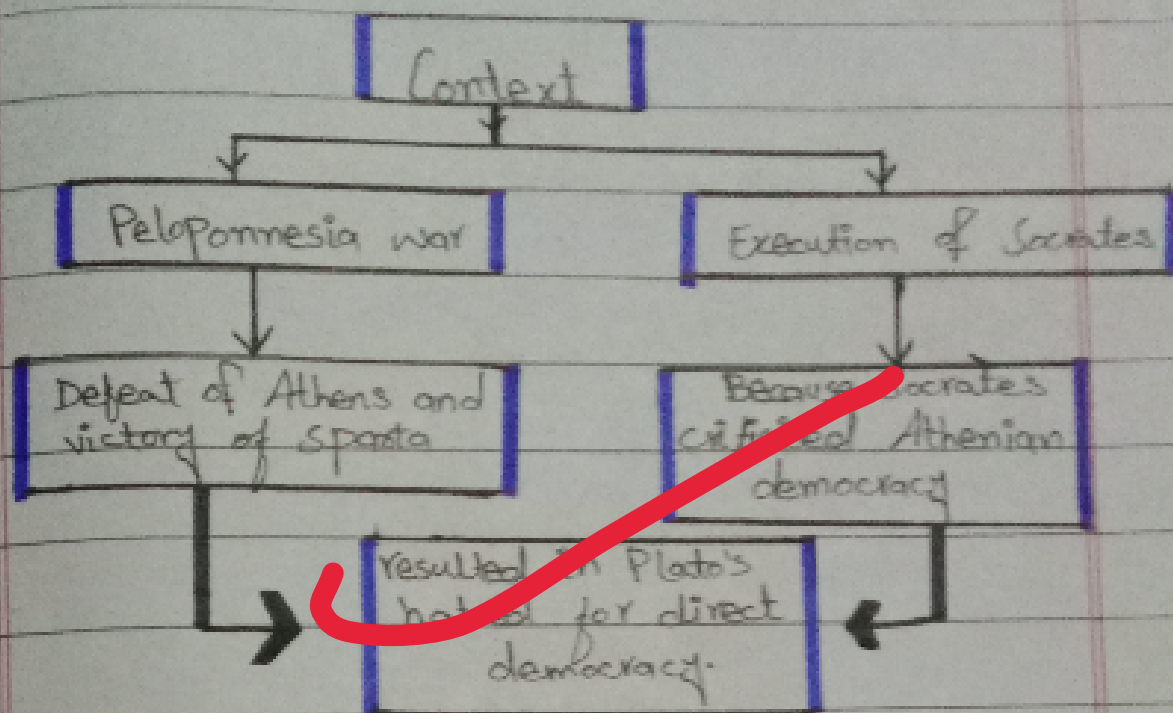 Context
Peloponnesia war
Execution of Socrates
Defeat of Athens and
victory of sparta
Because Socrates
criticised Athenian
democracy
resulted in Plato's
hatred for direct
democracy.